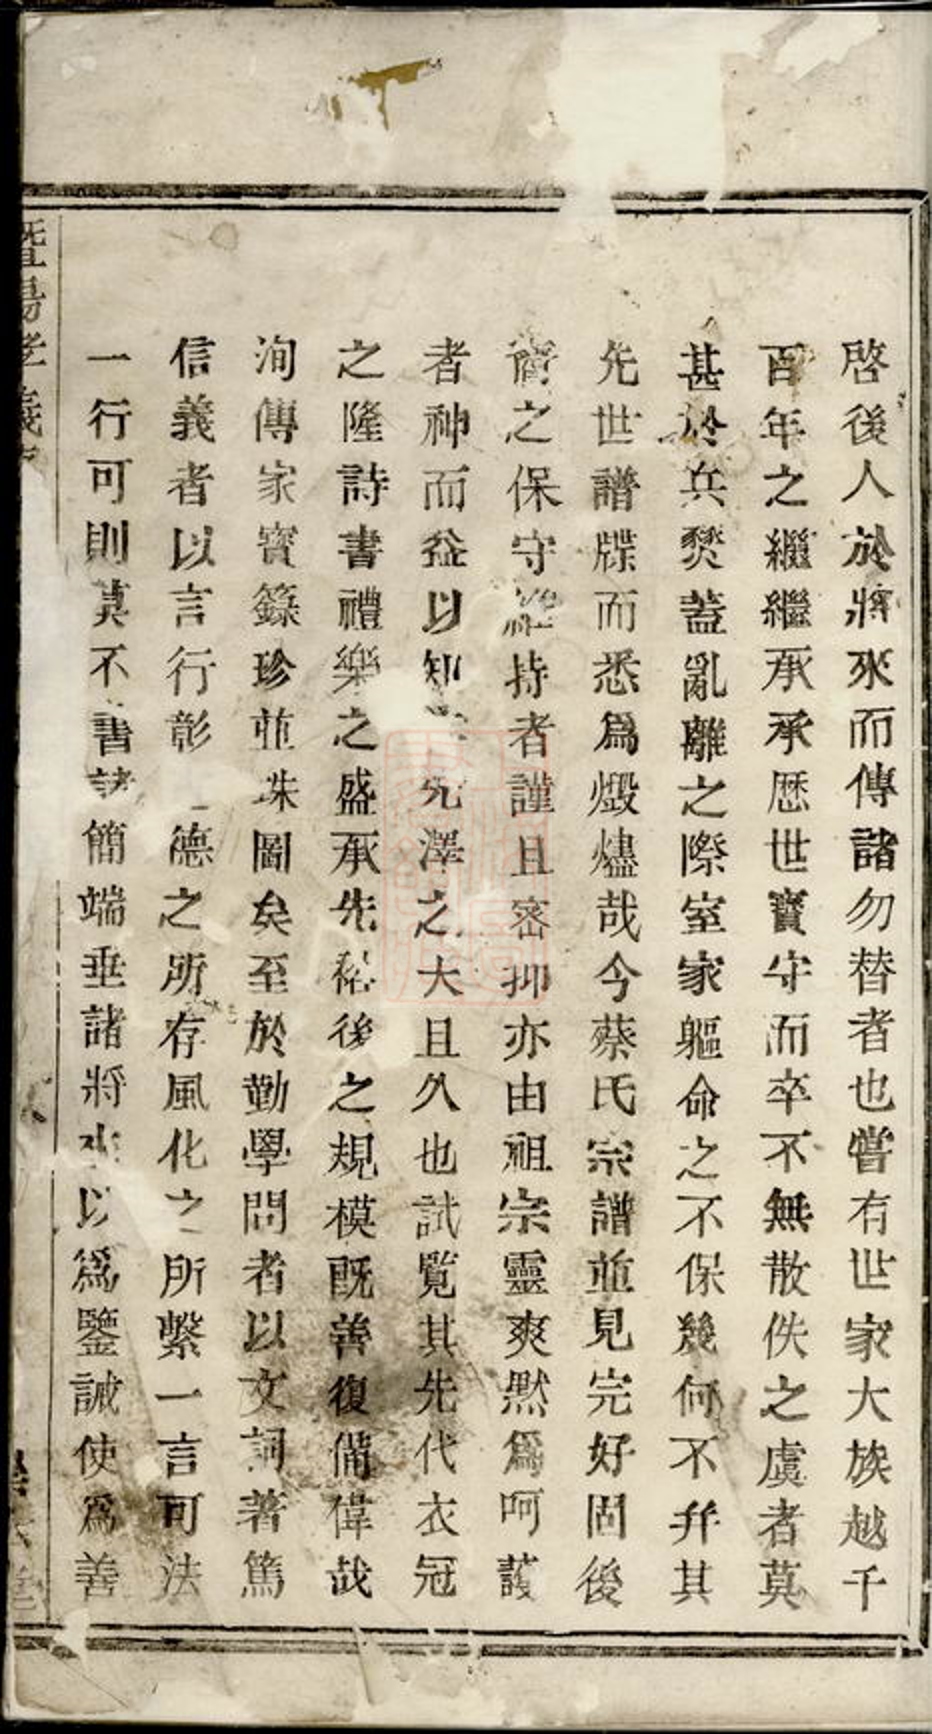 啓後人於將來而傳諸勿替者也嘗有世家大族越千
百年之繼繼承承歷世寳守而卒不無散佚之虞者莫
甚於兵燹蓋亂離之際室家軀命之不保幾何不幷其
先世譜牒而悉爲燬燼哉今蔡氏宗譜並見完好固後
裔之保守維持者謹且密抑亦由祖宗靈爽默爲呵護
者神而益以知先澤之大且久也試覧其先代衣冠
之隆詩書禮樂之盛承先裕後之規模既善復備偉哉
洵傳家寳籙珍並珠圖矣至於勤學問者以文詞著篤
信義者以言行彰德之所存風化之所繫一言可法
一行可則莫不書諸簡端垂諸將來以爲鑒誡使爲善
暨陽孝義